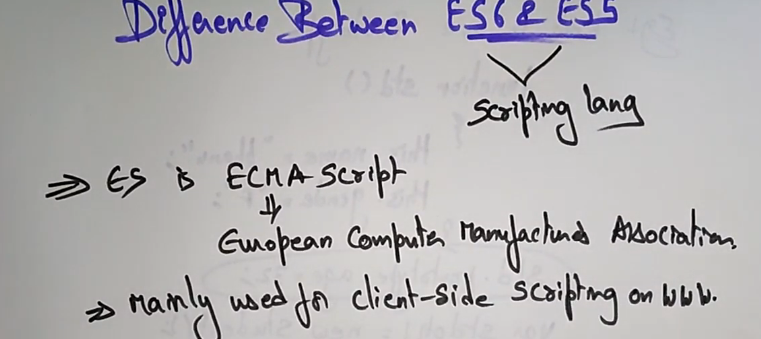 Difference Between ES6 & ES5
Scripting lang
⇒ ES is ECMA Script
⇓
European Computer Manufactures Association.
⇒ Mainly used for client-side scripting on WWW.